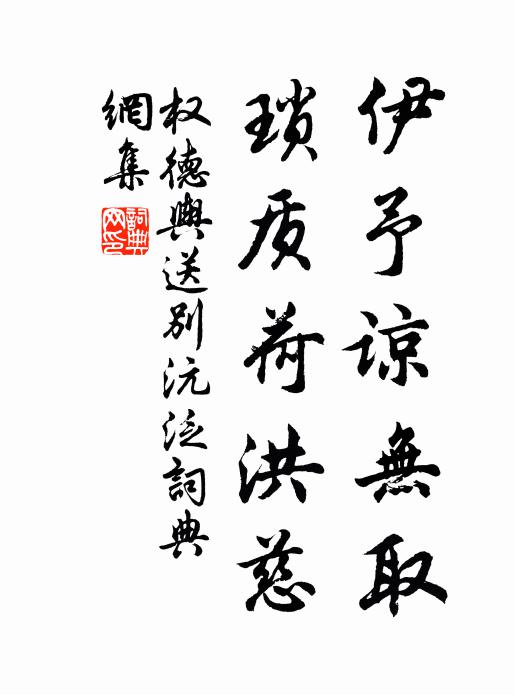 伊予谅無取
瑣质荷洪慈
权德輿送别沅泛詞典
網集
詞典
网印